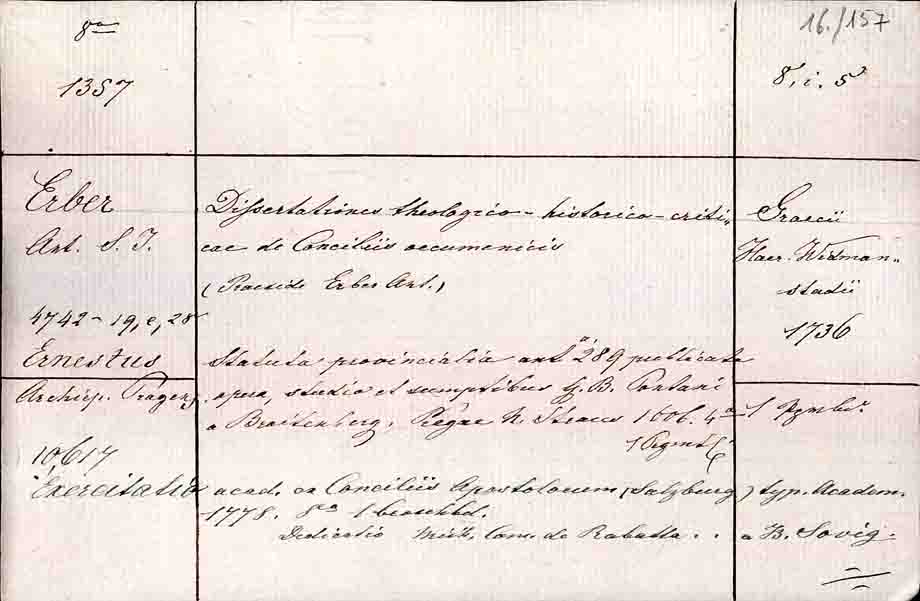 8°
1357
16./157
8, i. 5
Erber
Ant. S. J.
Dissertationes theologico-historico-criti-
cae de Conciliis oecumenicis
(Praeside Erber Ant.)
Graecii
Haer. Widman-
stadii
1736
4742 - 19, e, 28
Ernestus
Archiep. Pragens.
Statuta provincialia ant 289 publicata
opera, studio et sumptibus G. B. Pontani
a Braitenberg, Pragae N. Straus 1606. 4°
1 Pgmt
1 Pgmbd.
10,617
Exercitatio acad. ex Conciliis Apostolorum (Salzburg) typ. Academ.
1778. 8° 1 beschbd.
Dedicatio Com. de Rabatta . . a B. Sovig.